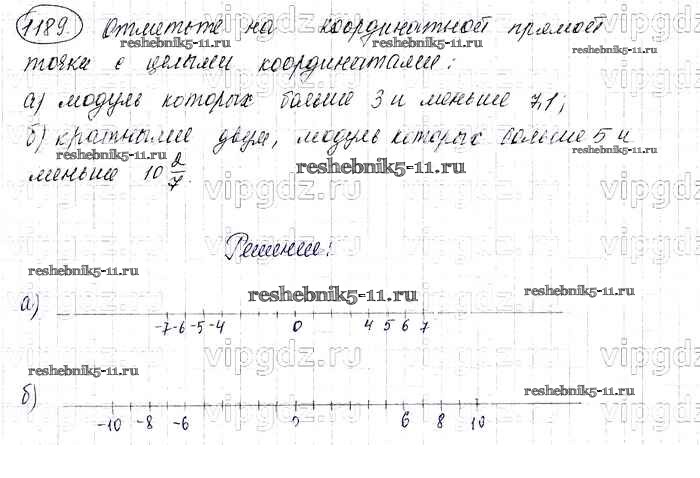 1189. Отметьте на координатной прямой
reshebnik5-11.ru reshebnik5-11.ru
точки с целыми координатами:
а) модуль которых больше 3 и меньше 7,1;
б) кратными двум, модуль которых больше 5 и
reshebnik5-11.ru reshebnik5-11.ru reshebnik5-11.ru
меньше 10 2/7.
Решение:
reshebnik5-11.ru
а) reshebnik5-11.ru reshebnik5-11.ru
-7 -6 -5 -4 0 4 5 6 7
reshebnik5-11.ru
б) reshebnik5-11.ru
-10 -8 -6 0 6 8 10
vipgdz.ru vipgdz.ru vipgdz.ru